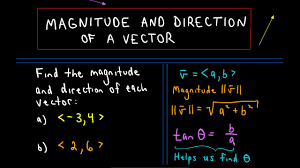 MAGNITUDE AND DIRECTION
OF A VECTOR
Find the magnitude
and direction of each
vector:
a) <-3,4>
b) <2,6>
v⃗ = <a,b>
Magnitude ||v⃗||
||v⃗|| = √(a² + b²)
tan θ = b/a
Helps us find θ